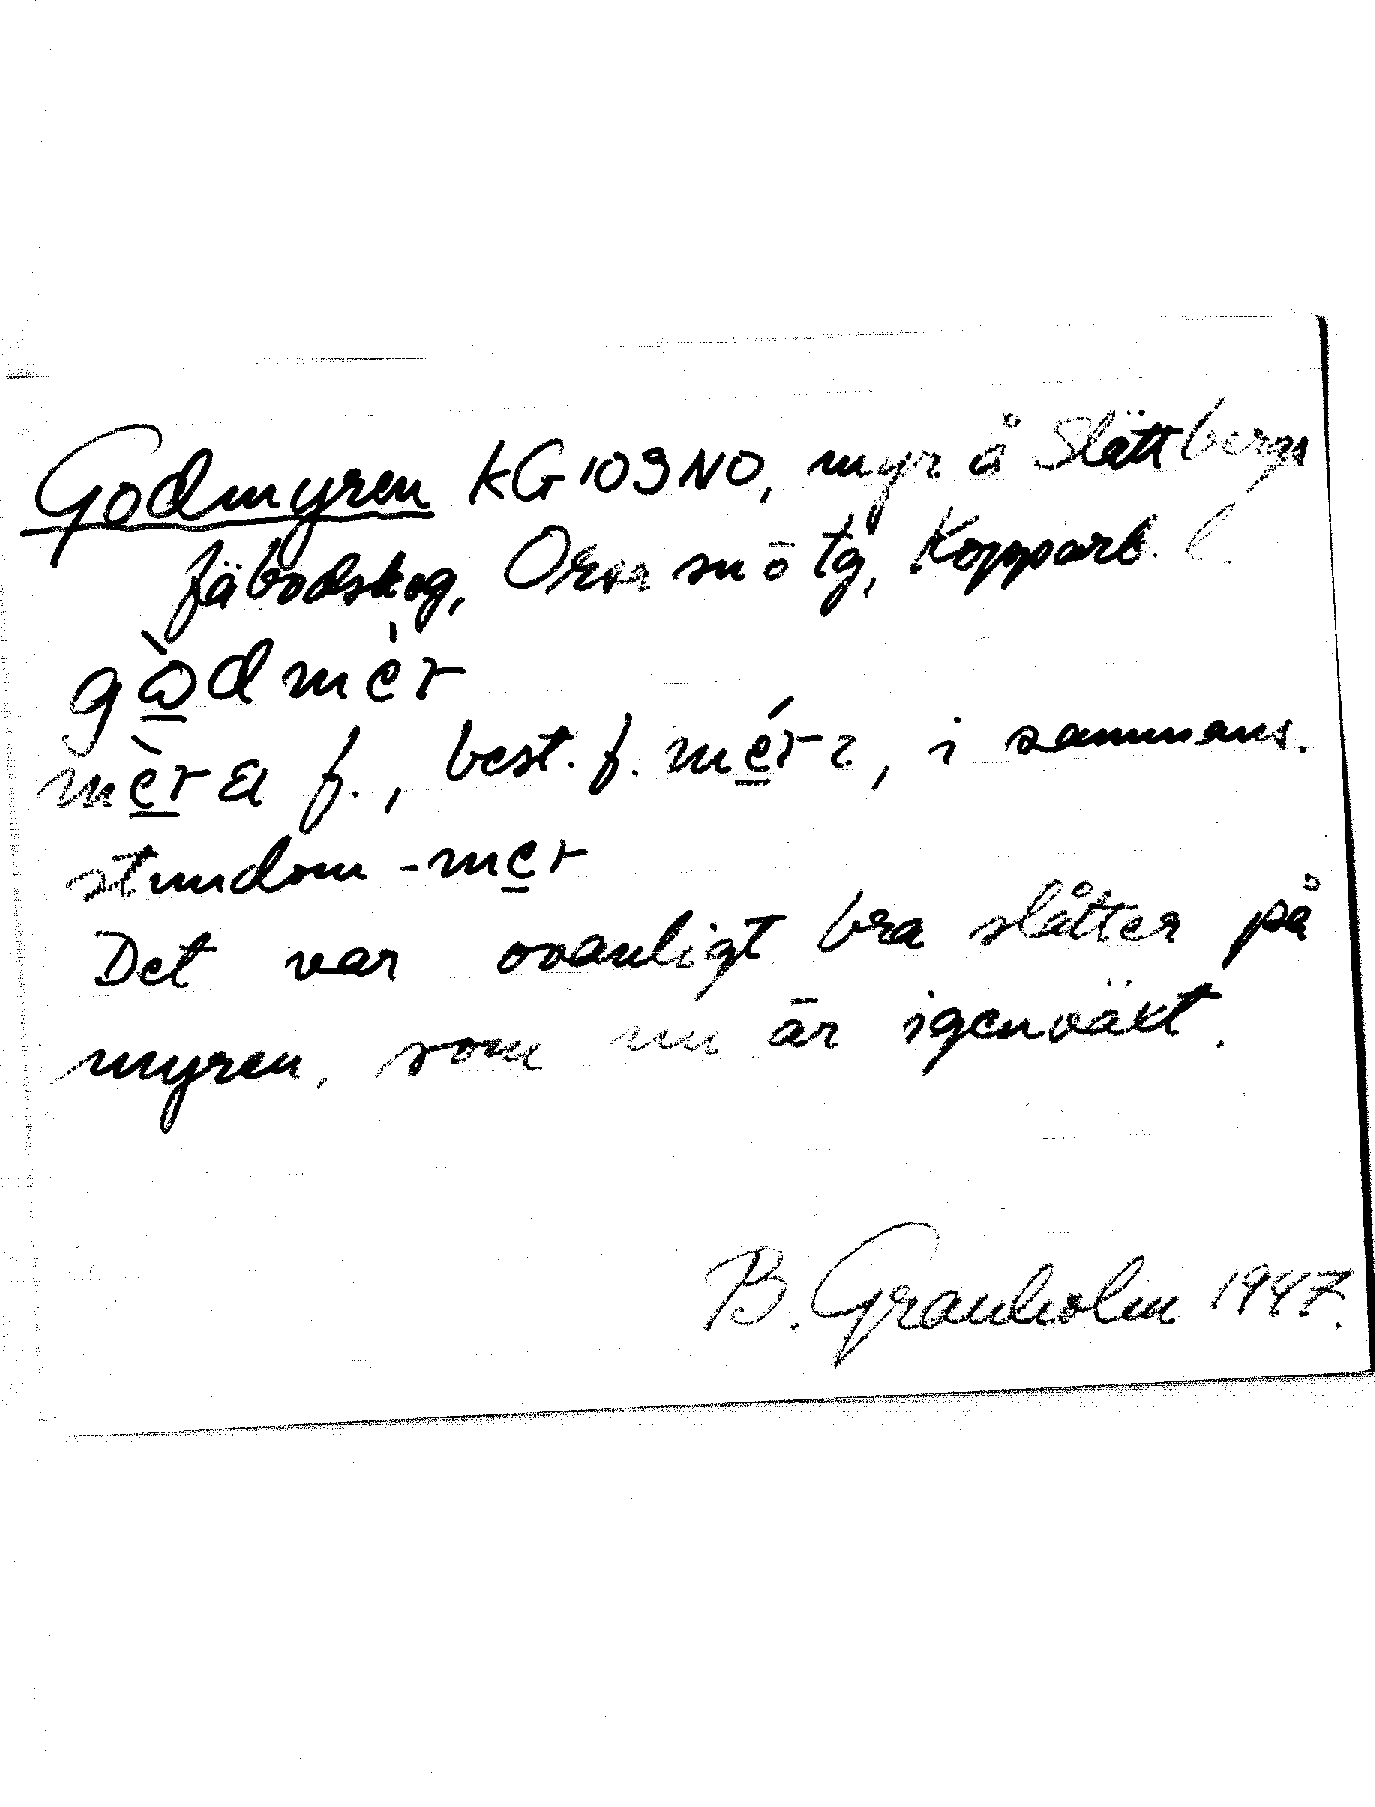 Godmyren KG 103 NO, myr å Slättbergs
fäbodskog, Orsa sn o tg, Kopparb. l.
gὼ̲dmèr
mè̲ra f., best. f. mé̲rɩ, i sammans.
stundom -me̲r
Det var ovanligt bra slåtter på
myren, som nu är igenväxt.
B. Granholm 1947.